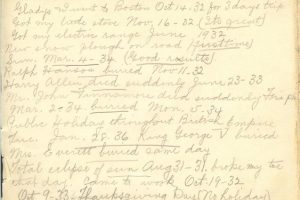 Gladys & I went to Boston Oct 14-32 for 3 days trip
Got my stove Nov. 16-32 (Its great)
Got my electric range June 1932
New snow plough on road (first time)
Mar. 4-34 (Good results)
Ralph Hanson buried Nov 11.32
Harry Allen died suddenly June 23-33
Mr. John died suddenly
Mar. 2-34. buried Mon. 5-34
Public Holiday throughout British Empire
Jan. 28.36 King George V buried
Mrs. Everett buried same day
Total eclipse of sun Aug 31-31. broke my toe
that day. Came to work Oct. 19-32
Oct 9-33 Thanksgiving Day (No holiday)